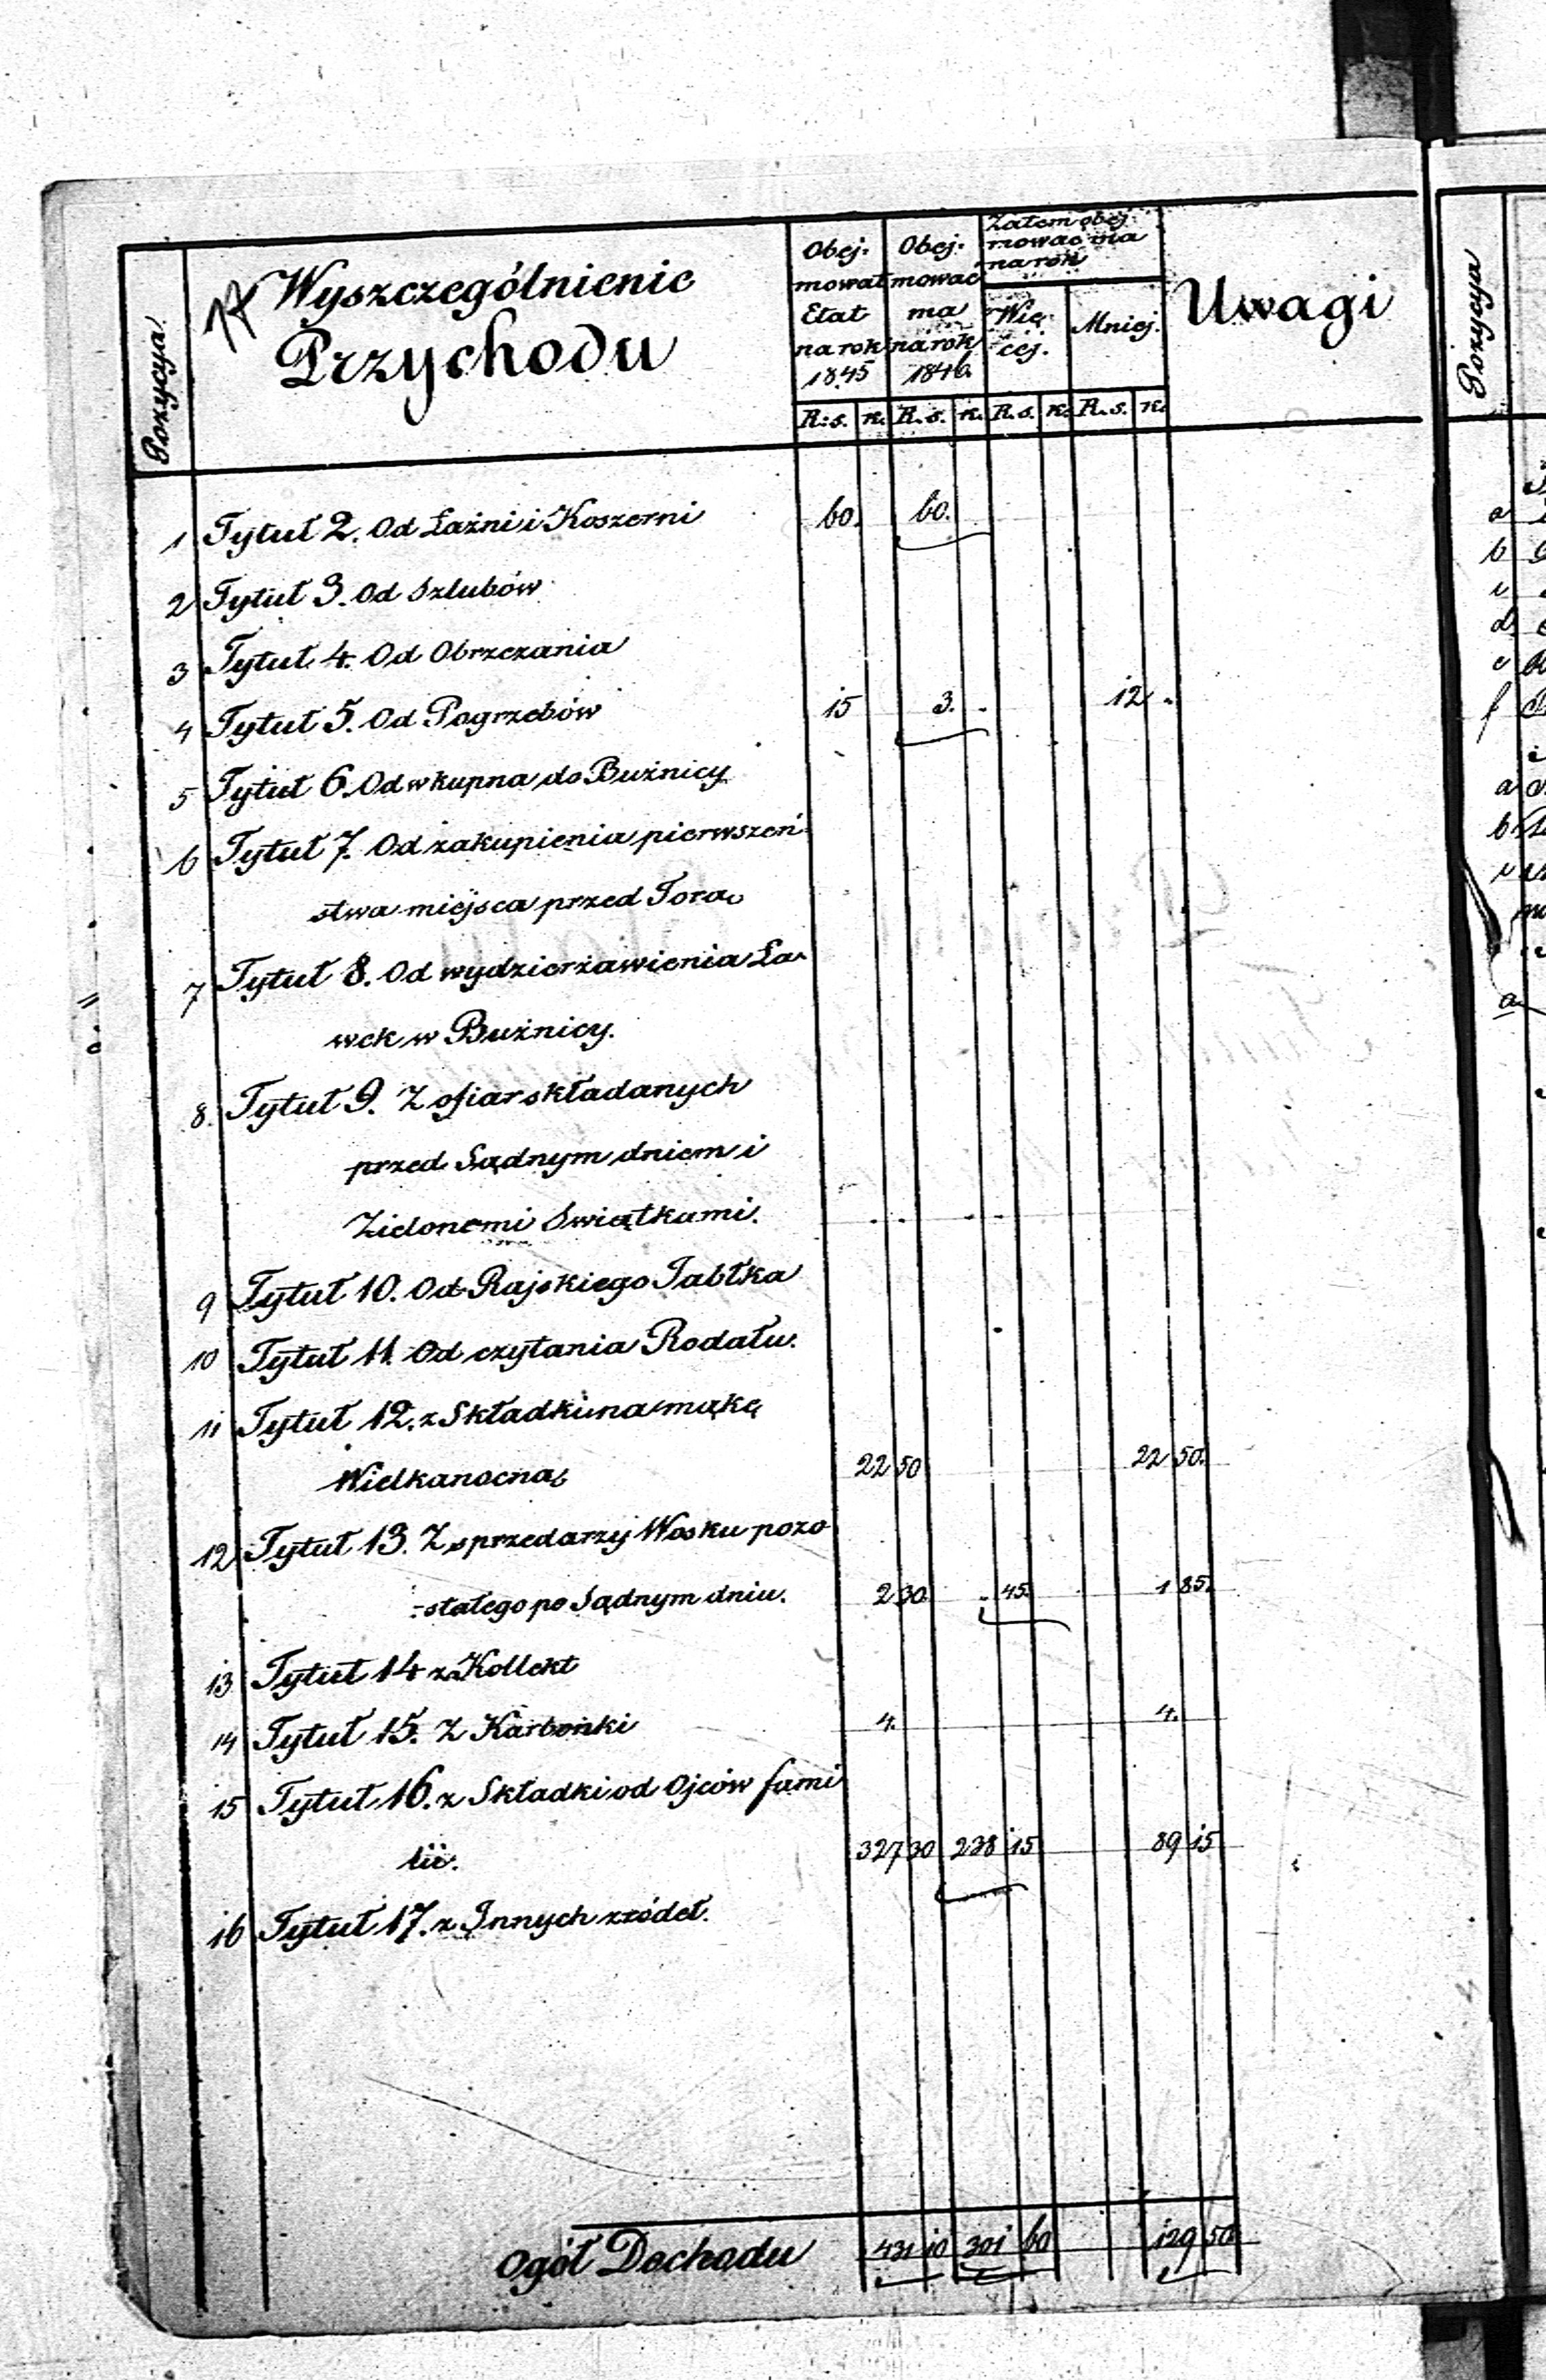 Pozycya
Wyszczególnienie
Przychodu
Obej-
mował
Etat
na rok
1845
Obej-
mować
ma
na rok
1846.
Zatem obej-
mować ma
na rok
Wię-
cej.
Mniej.
Uwagi
R: s. k. R. s. k. R. s. k. R. s. k.
1 Tytuł 2. Od Łaźni i Koszerni 60. 60.
2 Tytuł 3. Od Szlubów
3 Tytuł 4. Od Obrzezania
4 Tytuł 5. Od Pogrzebów 15 3. - 12 -
5 Tytuł 6. Od wkupna do Bużnicy
6 Tytuł 7. Od zakupienia pierwszeń-
stwa miejsca przed Torą
7 Tytuł 8. Od wydzierżawienia Ła-
wek w Bużnicy.
8. Tytuł 9. Z ofiar składanych
przed Sądnym dniem i
Zielonemi Swiątkami.
9 Tytuł 10. Od Rajskiego Jabłka
10 Tytuł 11. Od czytania Rodału.
11 Tytuł 12. z Składki na mąkę
Wielkanocną 22 50 22 50.
12 Tytuł 13. Z sprzedarzy Wosku pozo
-stałego po Sądnym dniu. 2 30. . 45. 1 85.
13 Tytuł 14 z Kollekt
14 Tytuł 15. Z Karbonki 4. 4.
15 Tytuł 16. z Składki od Ojców fami
lii. 327 30 238 15 89 15
16 Tytuł 17. z Innych zródeł.
Ogół Dochodu 431 10 301 60 129 50
Pozycya
a
b
d
e
f
a
b
a